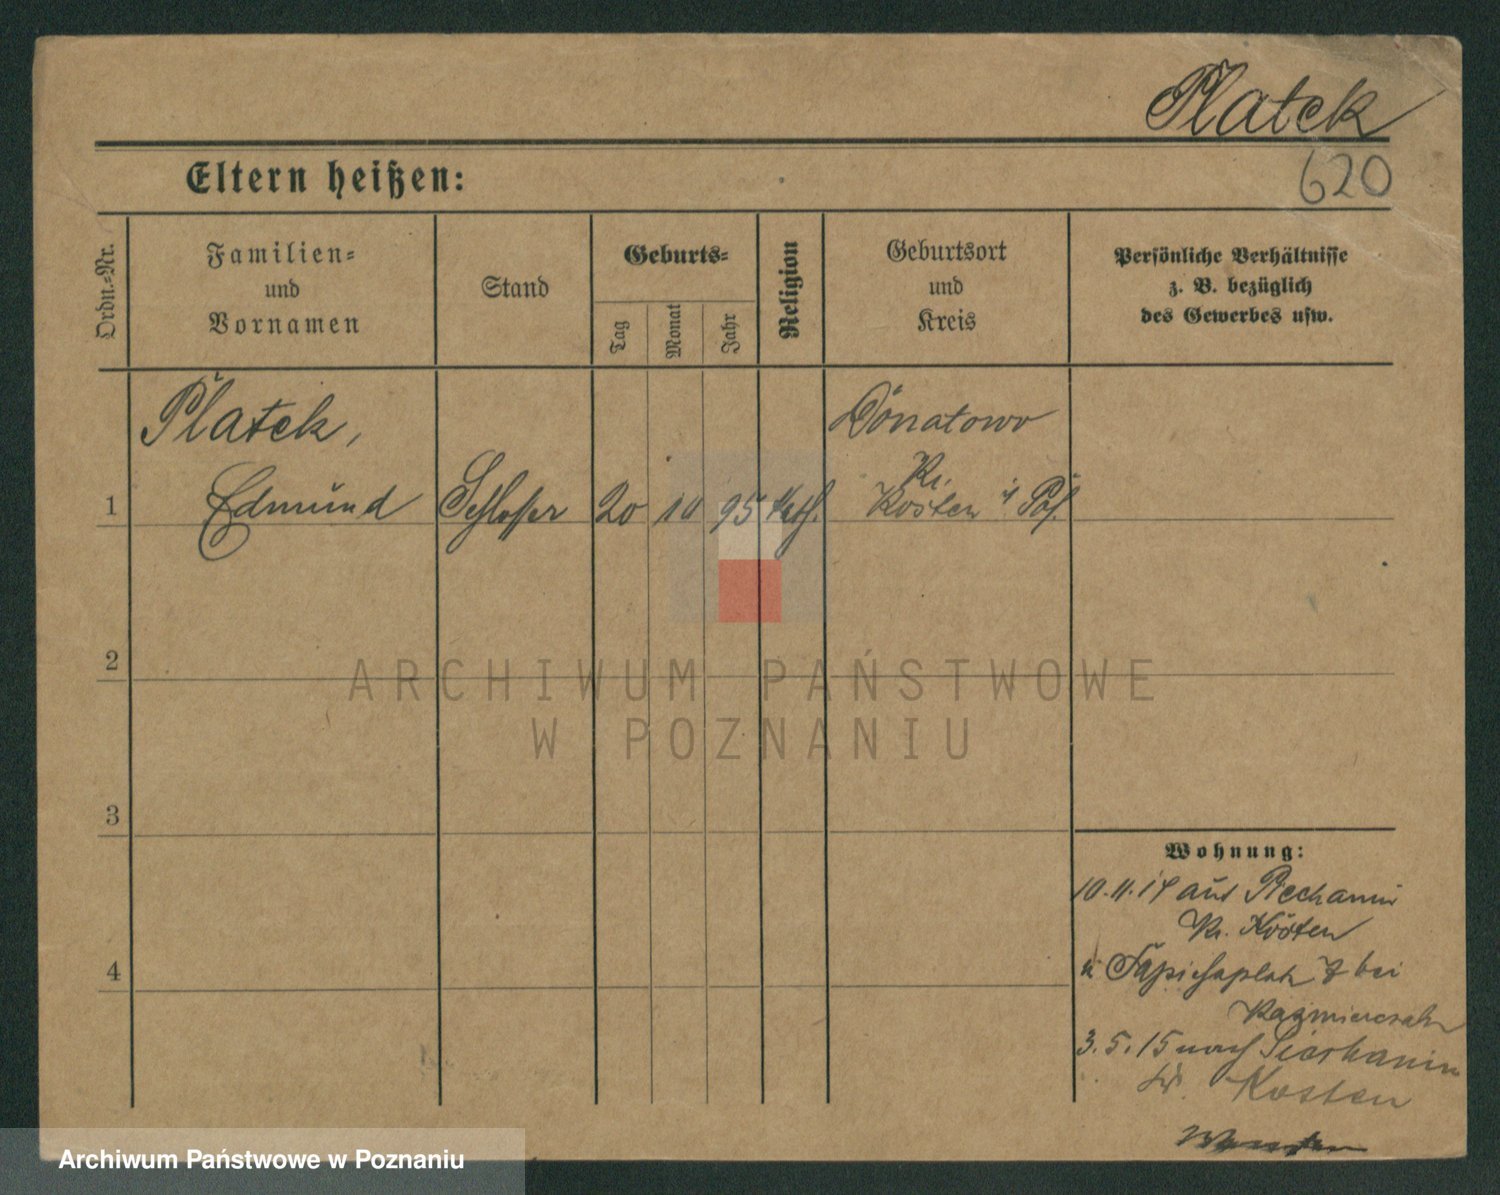 Płatek
620
Eltern heißen:
Ordn.-Nr.
Familien-
und
Vornamen
Stand
Geburts-
Tag
Monat
Jahr
Religion
Geburtsort
und
Kreis
Persönliche Verhältnisse
z. B. bezüglich
des Gewerbes usw.
Płatek,
Donatowo
Kr.
1 Edmund Schlosser 20 10 95 Kath. Kosten i/ Pos.
2
ARCHIWUM PAŃSTWOWE
W POZNANIU
3
Wohnung:
10.11.14 aus Piechanin
Kr. Kosten
4
bei
Kazmierczak
3.5.15 nach Piechanin
Kr. Kosten
Archiwum Państwowe w Poznaniu